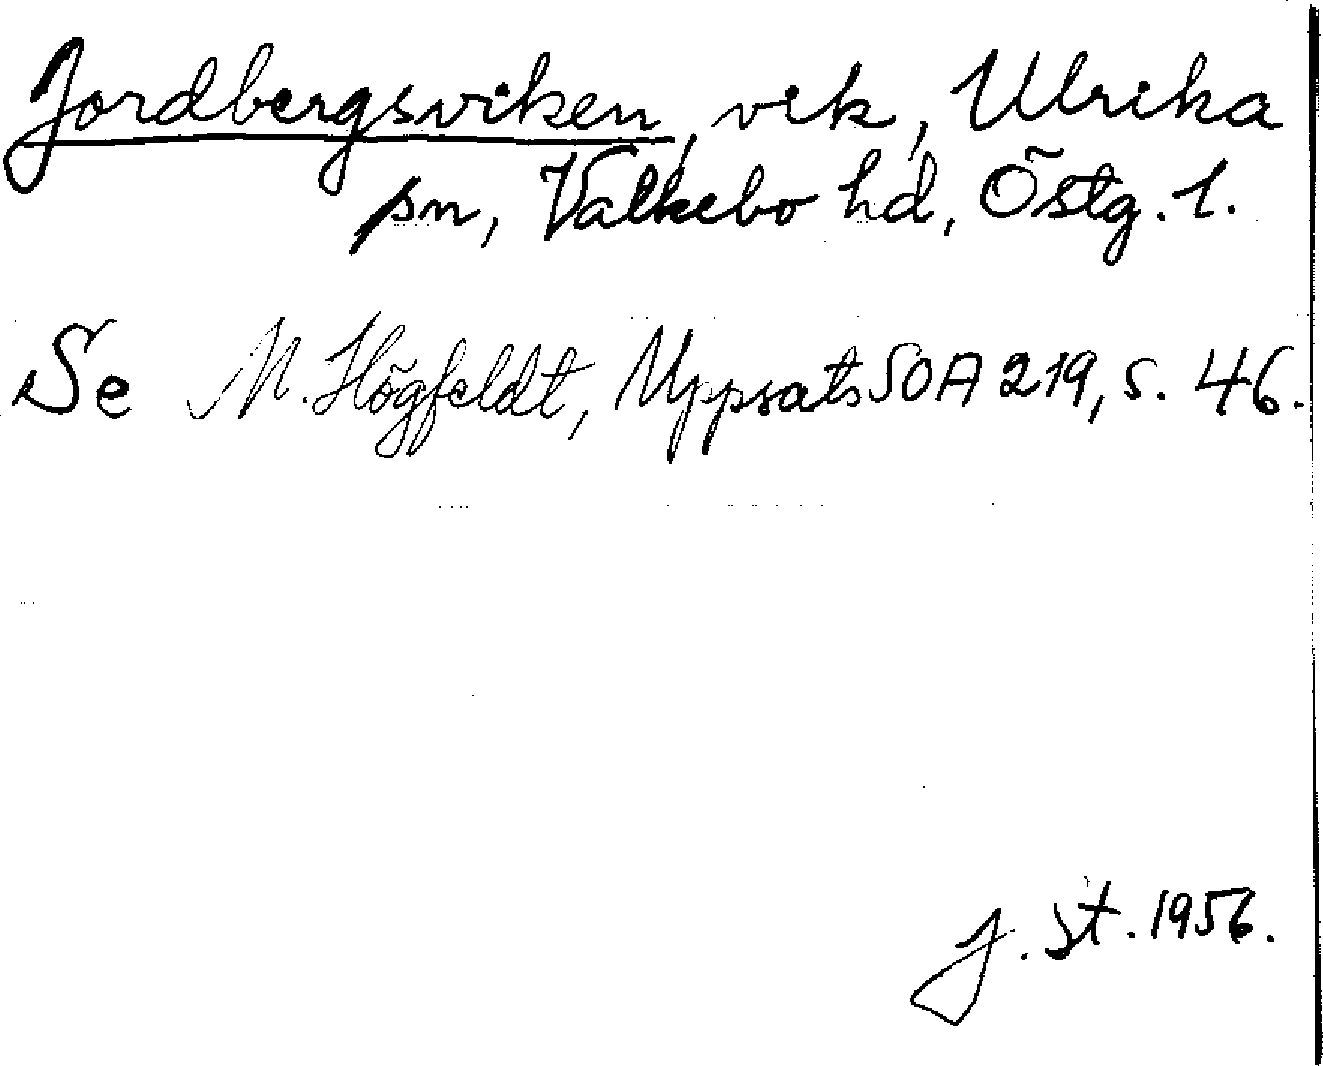 Jordbergsviken, vik, Ulrika
sn, Valkebo hd, Östg. l.
Se M. Högfeldt, Uppsats SOA 219, s. 46.
J. St. 1956.